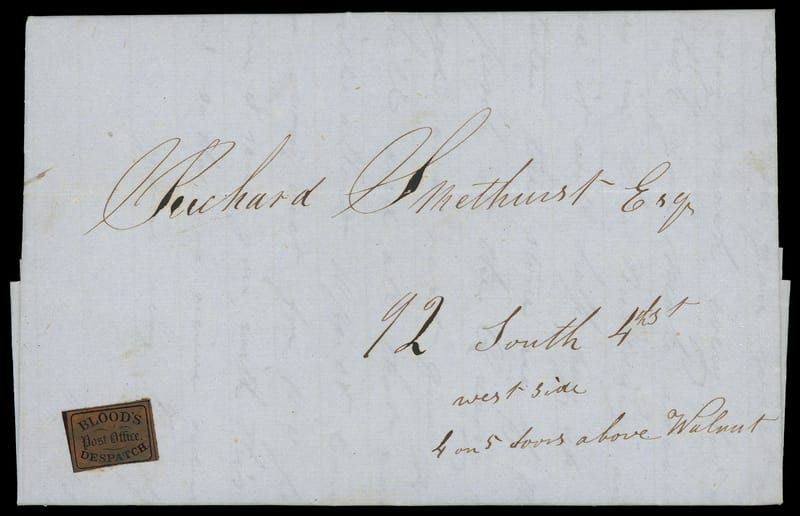 Richard Smethurst Esq
92 South 4th st
west side
4 or 5 doors above Walnut
BLOOD'S
Post Office
DESPATCH.